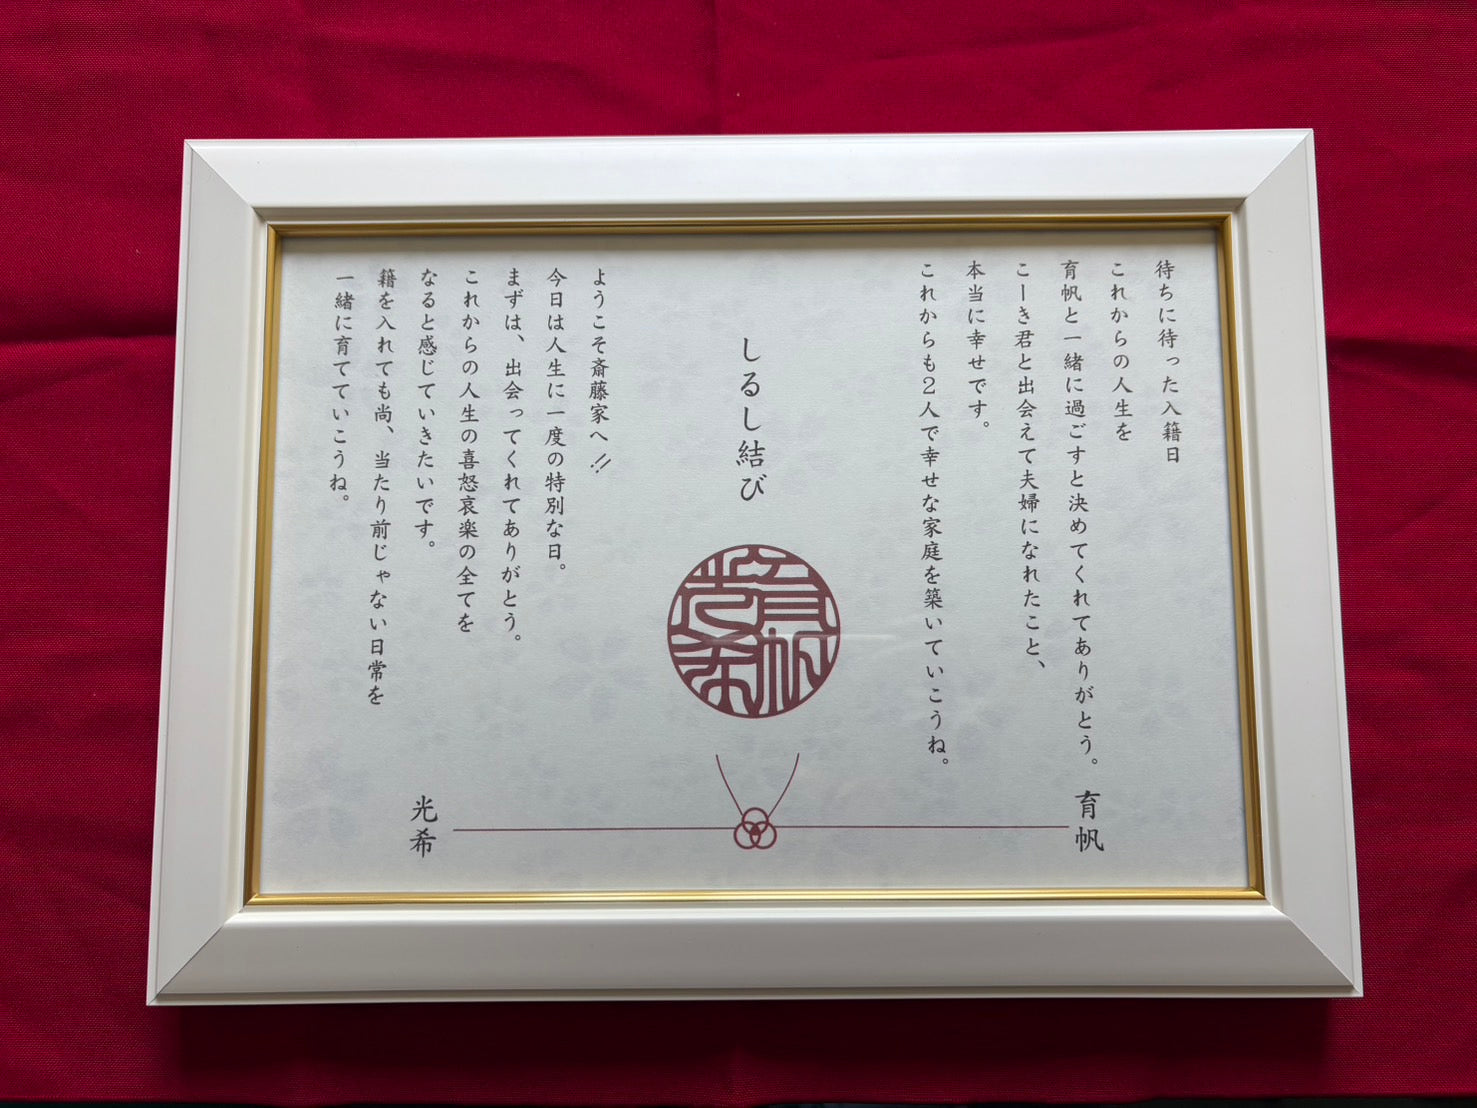 待ちに待った入籍日
これからの人生を
育帆と一緒に過ごすと決めてくれてありがとう。
こーき君と出会えて夫婦になれたこと、
本当に幸せです。
これからも2人で幸せな家庭を築いていこうね。
育帆
しるし結び
育帆
光希
ようこそ斎藤家へ!!
今日は人生に一度の特別な日。
まずは、出会ってくれてありがとう。
これからの人生の喜怒哀楽の全てを
なると感じていきたいです。
籍を入れても尚、当たり前じゃない日常を
一緒に育てていこうね。
光希